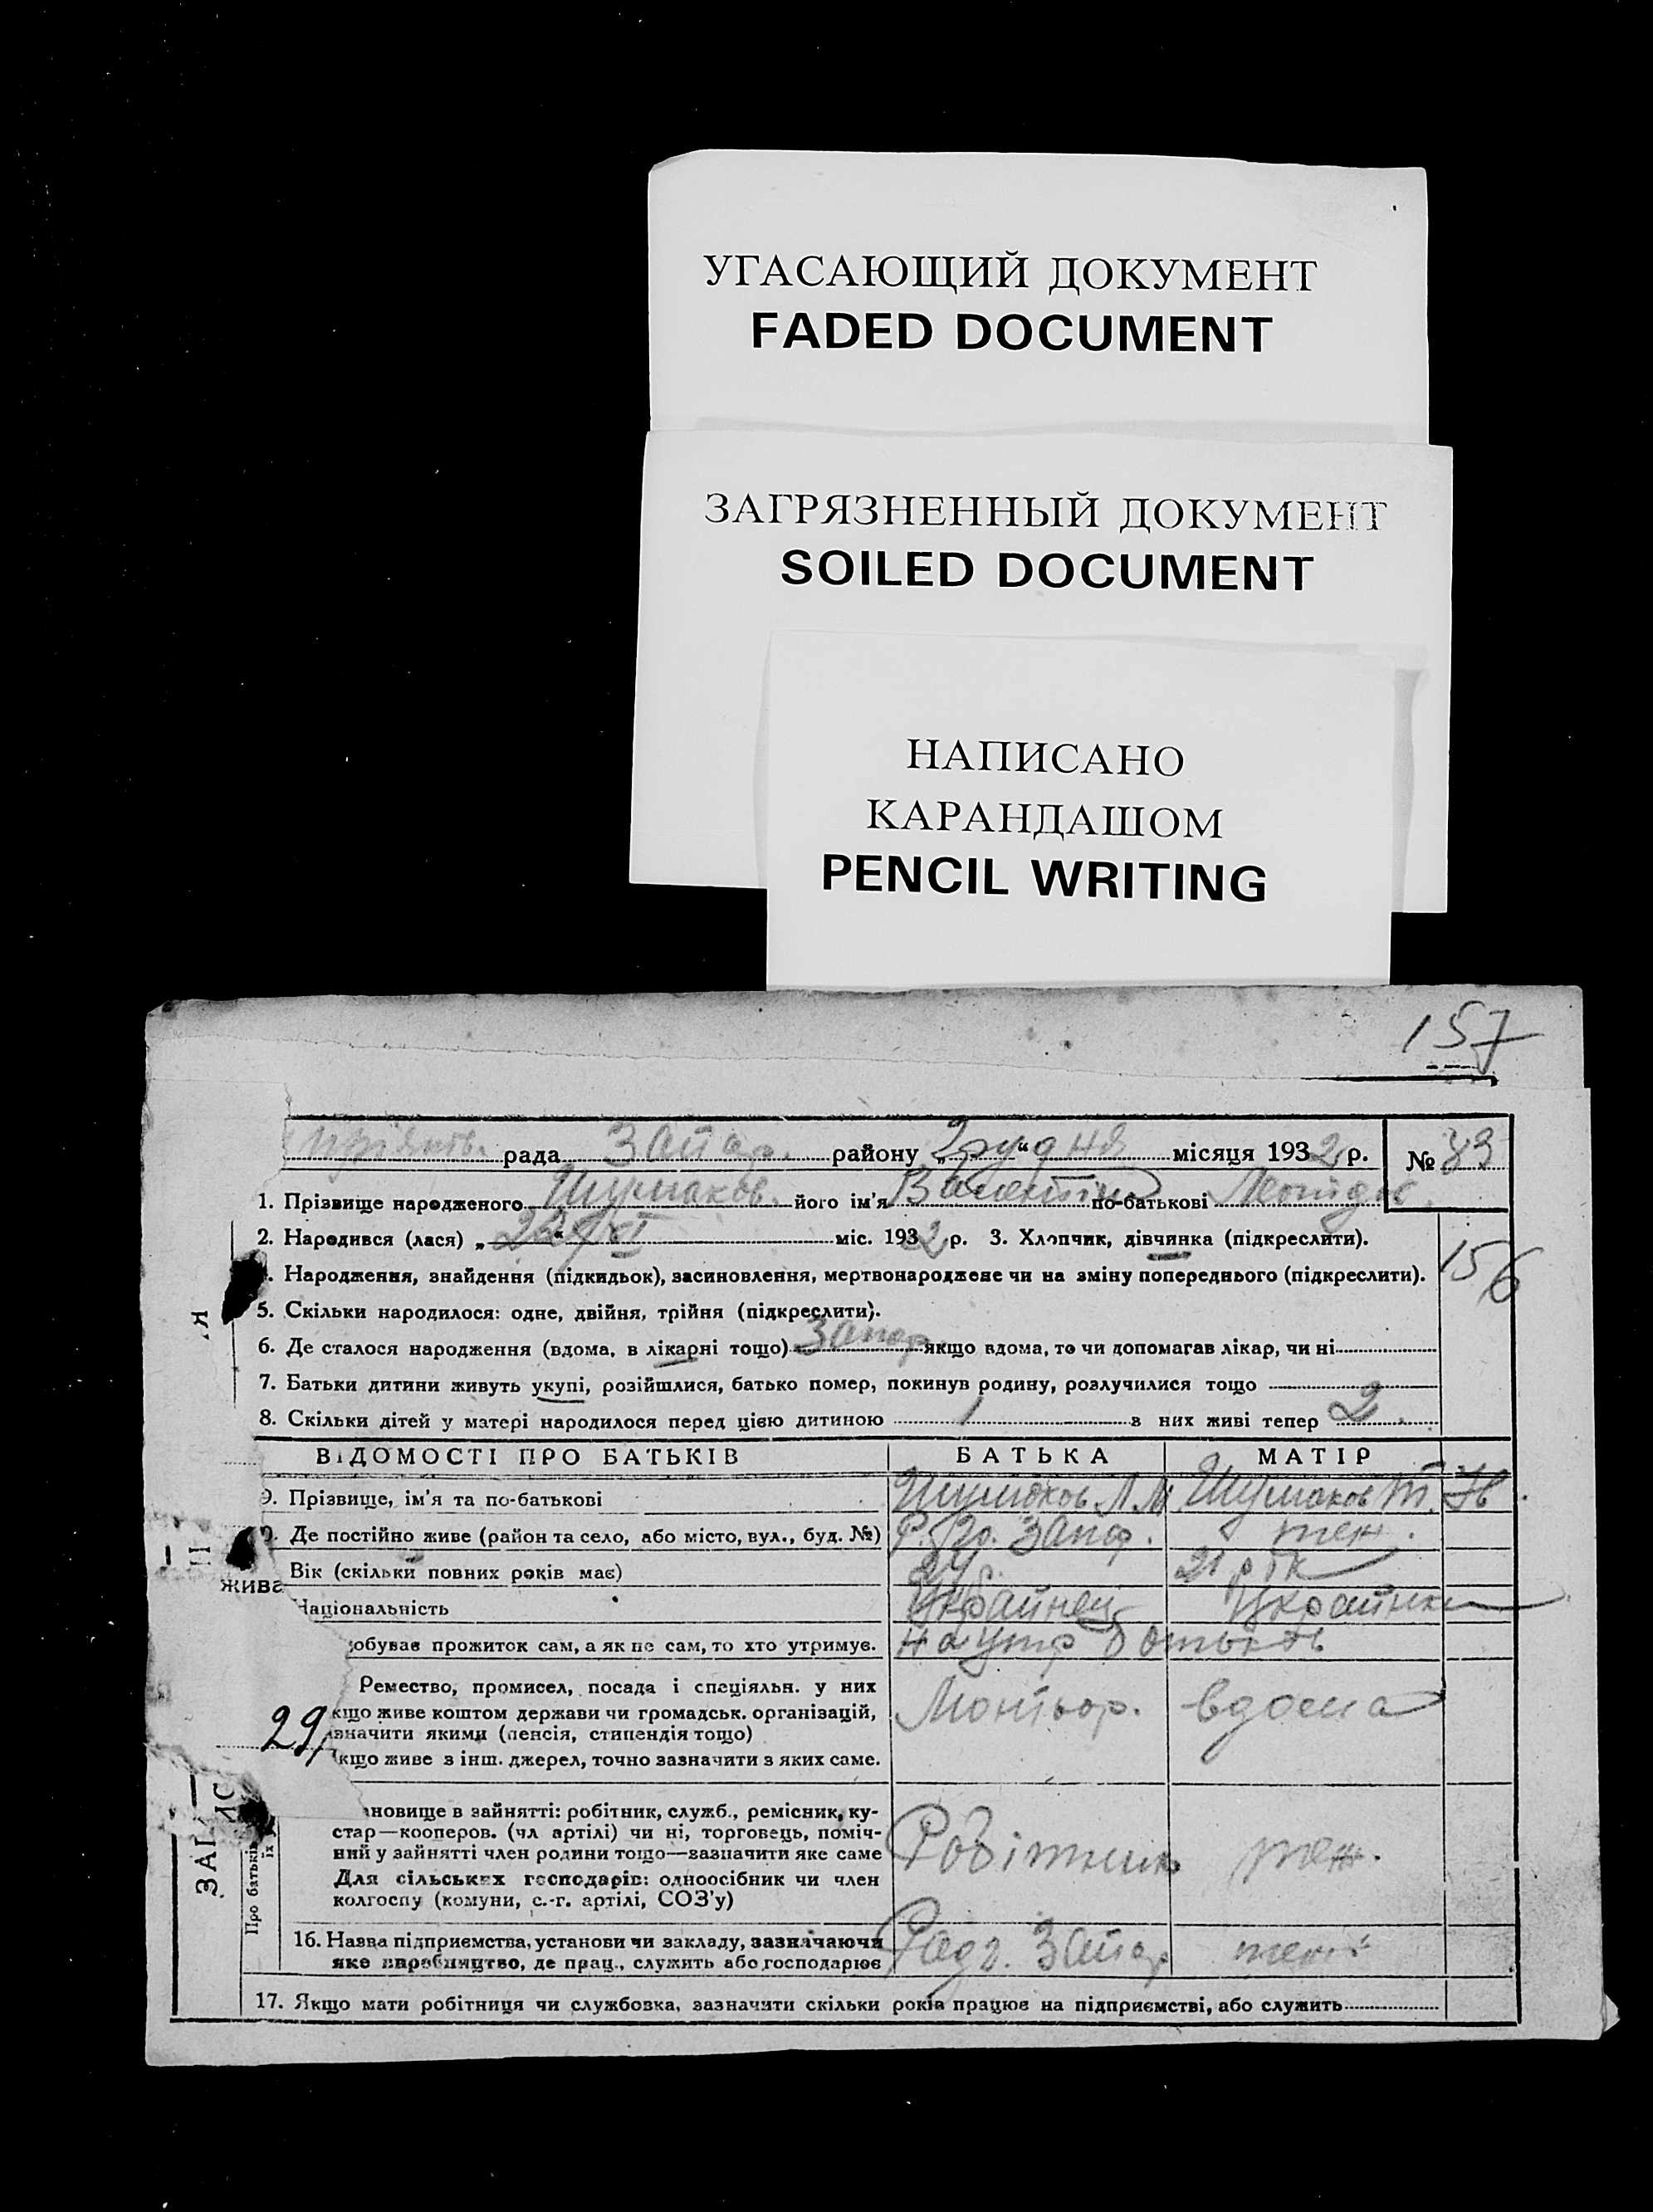 УГАСАЮЩИЙ ДОКУМЕНТ
FADED DOCUMENT
ЗАГРЯЗНЕННЫЙ ДОКУМЕНТ
SOILED DOCUMENT
НАПИСАНО
КАРАНДАШОМ
PENCIL WRITING
157
рада Запор. району „ “ грудня місяця 1932 р. № 83
1. Прізвище народженого Шумаков. його ім'я Валентіна по-батькові Леонидов.
2. Народився (лася) „22“ XI міс. 1932 р. 3. Хлопчик, дівчинка (підкреслити).
Народження, знайдення (підкидьок), засиновлення, мертвонароджене чи на зміну попереднього (підкреслити). 156
5. Скільки народилося: одне, двійня, трійня (підкреслити).
6. Де сталося народження (вдома, в лікарні тощо) Запор. якщо вдома, то чи допомагав лікар, чи ні
7. Батьки дитини живуть укупі, розійшлися, батько помер, покинув родину, розлучилися тощо
8. Скільки дітей у матері народилося перед цією дитиною 1 з них живі тепер 2
ВІДОМОСТІ ПРО БАТЬКІВ БАТЬКА МАТІР
9. Прізвище, ім'я та по-батькові Шумаков Л. М. Шумаков Т.
Де постійно живе (район та село, або місто, вул., буд. №) Запор. теж.
Вік (скільки повних років має) 24 21 рік
жива
Національність Українец Українка
обував прожиток сам, а як не сам, то хто утримує. на утр батьків
Ремество, промисел, посада і спеціяльн. у них Монтьор. вдома
кщо живе коштом держави чи громадськ. організацій,
значити якими (пенсія, стипендія тощо)
29
кщо живе з інш. джерел, точно зазначити з яких саме.
ановище в зайнятті: робітник, служб., ремісник, ку-
стар—кооперов. (чл артілі) чи ні, торговець, поміч-
ний у зайнятті член родини тощо—зазначити яке саме Робітник теж.
Для сільських господарів: одноосібник чи член
колгоспу (комуни, с.-г. артілі, СОЗ'у)
Про батьків
їх
16. Назва підприємства, установи чи закладу, зазначаючи Радг. Запор теж
яке виробництво, де прац., служить або господарює
17. Якщо мати робітниця чи службовка, зазначити скільки років працює на підприємстві, або служить